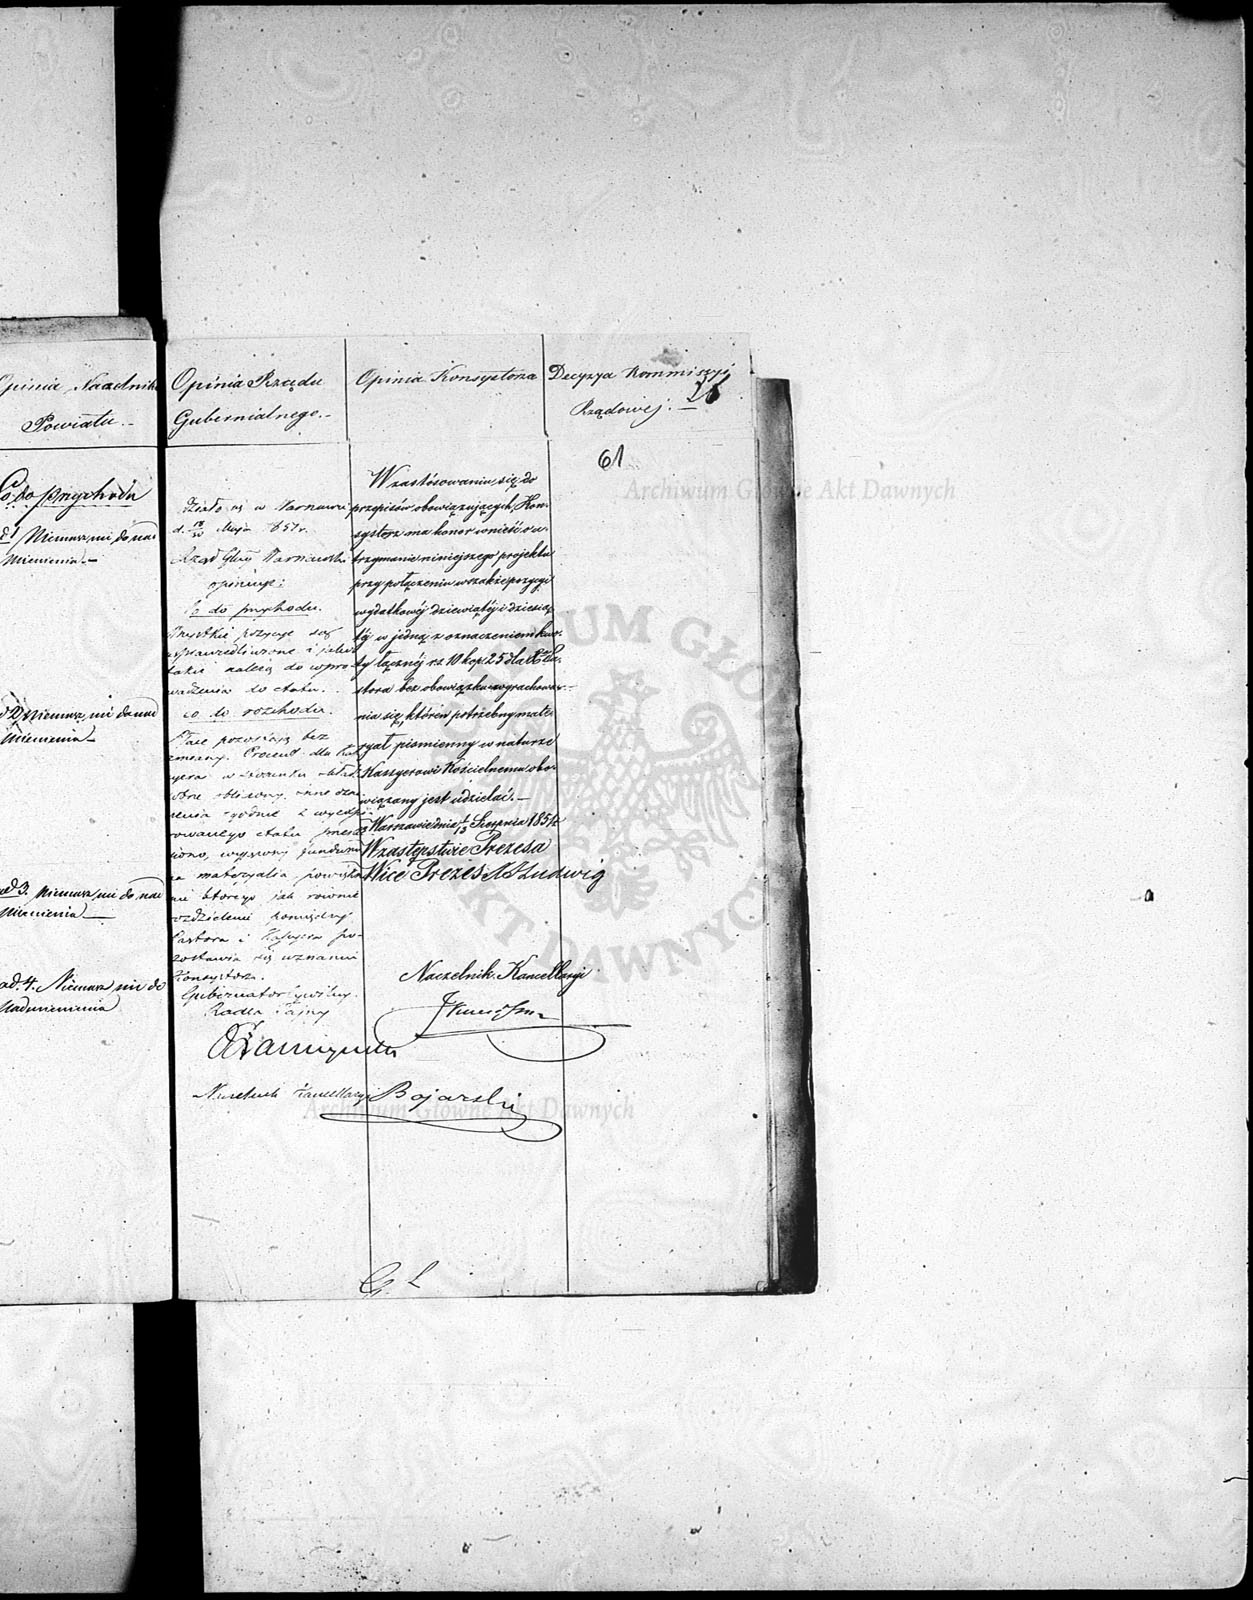 Opinia Naczelnika
Powiatu.
Co do przychodu
ad 1 Niemasz nic do nad
mienienia.
ad 2. Niemasz nic do nad
mienienia
ad 3. Niemasz nic do nad
mienienia
ad. 4. Niemasz nic do
nadmienienia
Opinia Rządu
Gubernialnego.
Działo się w Warszawie
d. 18/30 Maja 1857 r.
Rząd Gluy Warszawski
opiniuje:
Co do przychodu.
Wszystkie pozycye są
usprawiedliwione i jako
takie należą do wpro
wadzenia do etatu.
co do rozchodu.
Płace pozostają bez
zmiany. Procent dla Kas
syera w stosunku
obliczony, inne
zgodnie z wyeksp
rowanego etatu
fundusz
na materyalia
którego jak również
rozdzielenie pomiędzy
Pastora i Kassyera po-
zostawia się uznaniu
Konsystorza.
Gubernator Cywilny
Radca Tajny
Naczelnik Kancellaryi Bojarski
Opinia Konsystorza
W zastósowaniu się do
przepisów obowiązujących, Kon-
systorz ma honor wnieść o u-
trzymanie niniejszego projektu
przy połączeniu wszakże pozycyi
wydatkowéj dziewiątéj i dziesią
téj w jedną z oznaczeniem kwo-
ty łącznéj rs. 10 kop. 25 dla Pa-
stora bez obowiązku wyrachowa-
nia się, któren potrzebny mate-
ryał piśmienny w naturze
Kassyerowi Kościelnemu obo-
wiązany jest udzielać.
Warszawie dnia 1/13 Sierpnia 1857 r.
W zastępstwie Prezesa
Wice Prezes Ludwig
Naczelnik Kancellaryi
Decyzya Kommissyi
Rządowej.
61
Archiwum Główne Akt Dawnych
ARCHIWUM GŁÓWNE AKT DAWNYCH
Archiwum Główne Akt Dawnych